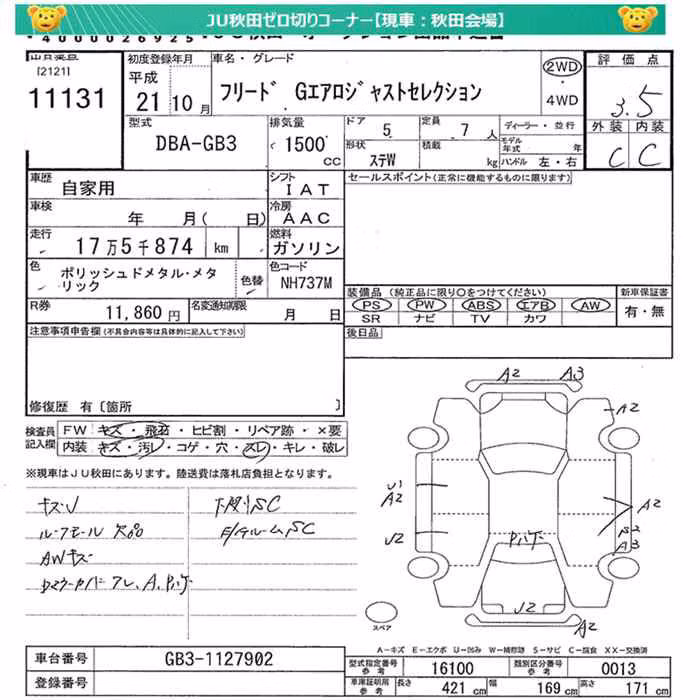 JU秋田ゼロ切りコーナー【現車：秋田会場】
[2121]
11131
初度登録年月
平成
21年10月
車名・グレード
フリード Gエアロジャストセレクション
2WD
・
4WD
評価点
3.5
外装 内装
C C
型式
DBA-GB3
排気量
1500
cc
ドア 5
定員 7人
ディーラー・並行
形状 ステW
積載 kg
モデル年式 年
ハンドル 左・右
車歴 自家用
シフト IAT
セールスポイント(正常に機能するものに限ります)
車検 年 月( 日)
冷房 AAC
走行 17万5千874 km
燃料 ガソリン
色 ポリッシュドメタル・メタリック
色替
色コード NH737M
R券 11,860円
名変通知期限 月 日
装備品 (純正品に限り○をつけてください)
PS PW ABS エアB AW
SR ナビ TV カワ
新車保証書
有・無
注意事項申告欄(不具合内容等は具体的に記入して下さい)
後日品
修復歴 有〔箇所 〕
検査員記入欄
FW キズ・飛石・ヒビ割・リペア跡・×要
内装 キズ・汚レ・コゲ・穴・スレ・キレ・破レ
※現車はJU秋田にあります。陸送費は落札店負担となります。
キズU
ルーフモール欠品
AWキズ
下廻りSC
E/gルームSC
A2 A3
A2
U1
A2
U2
A2
S2
A3
Pハゲ
U2
A2
スペア
A－キズ E－エクボ U－凹み W－補修跡 S－サビ C－腐食 XX－交換済
車台番号 GB3-1127902
登録番号
型式指定番号 参考 16100
類別区分番号 参考 0013
車庫証明用 参考 長さ 421cm 幅 169cm 高さ 171cm